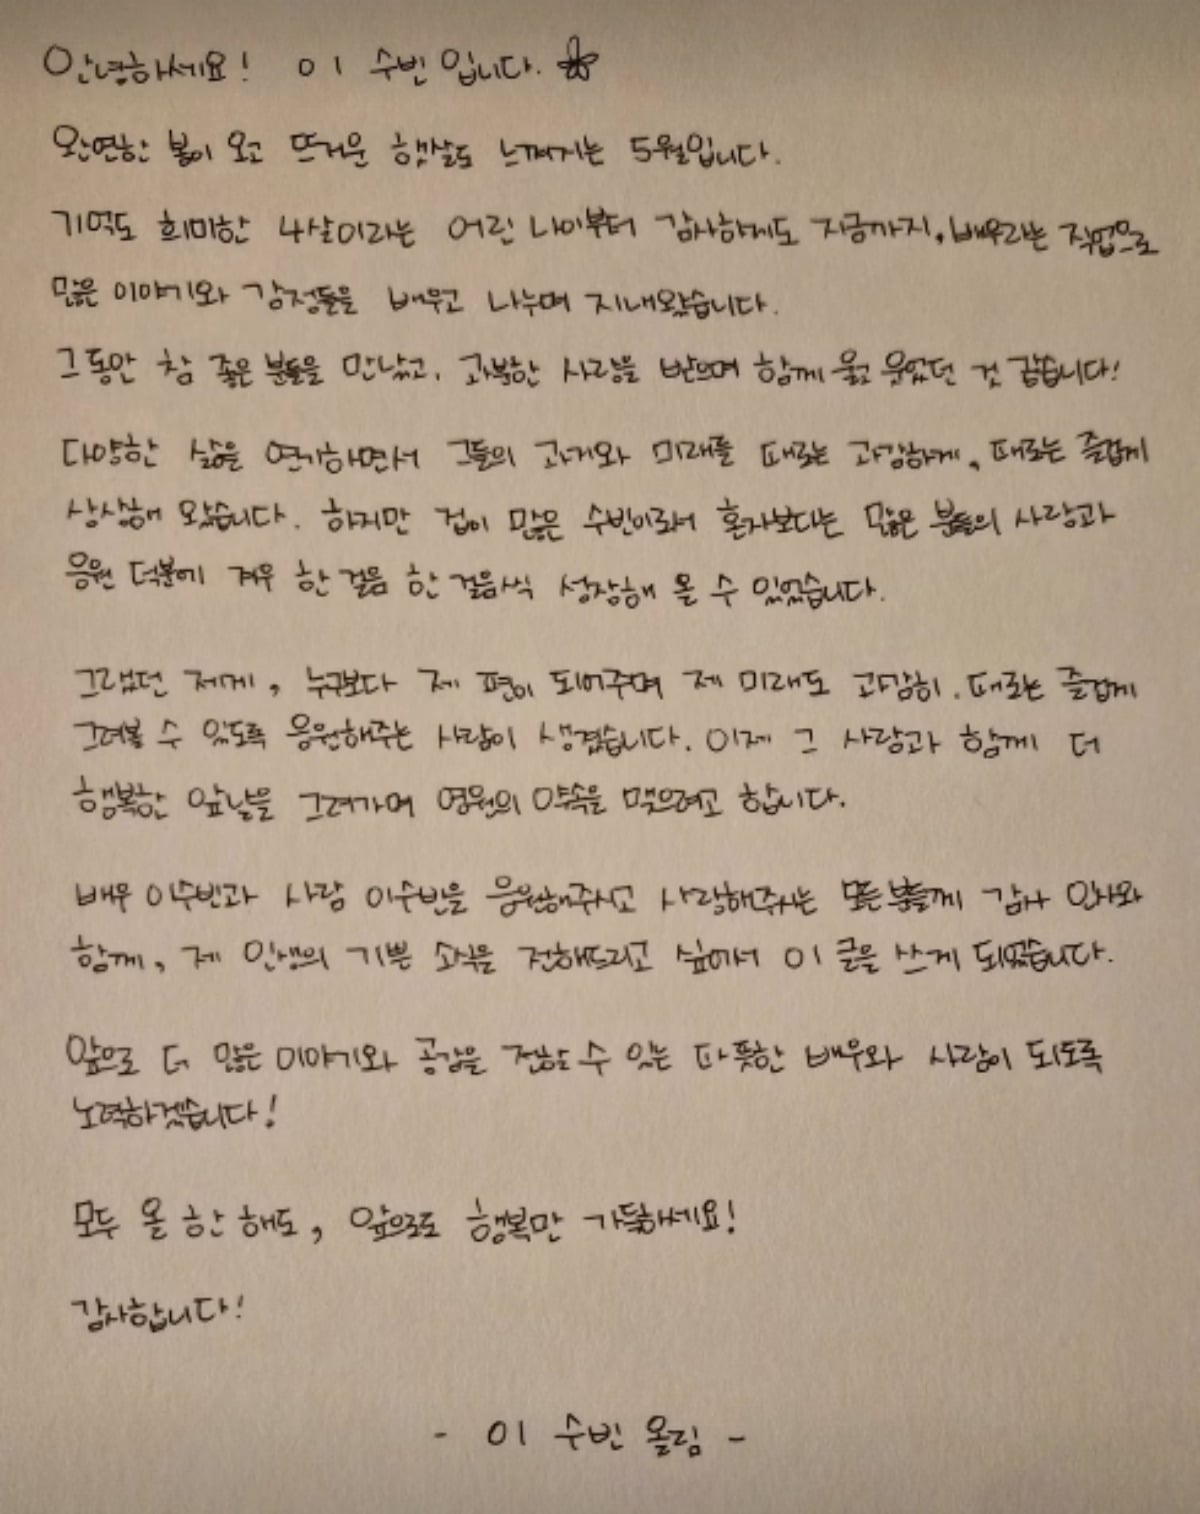 안녕하세요! 이 수빈 입니다.
완연한 봄이 오고 뜨거운 햇살도 느껴지는 5월입니다.
기억도 희미한 4살이라는 어린 나이부터 감사하게도 지금까지, 배우라는 직업으로
많은 이야기와 감정들을 배우고 나누며 지내왔습니다.
그동안 참 좋은 분들을 만났고, 과분한 사랑을 받으며 함께 울고 웃었던 것 같습니다!
다양한 삶을 연기하면서 그들의 과거와 미래를 때로는 과감하게, 때로는 즐겁게
상상해 왔습니다. 하지만 겁이 많은 수빈이로서 혼자보다는 많은 분들의 사랑과
응원 덕분에 겨우 한 걸음 한 걸음씩 성장해 올 수 있었습니다.
그랬던 저에게, 누구보다 제 편이 되어주며 제 미래도 과감히, 때로는 즐겁게
그려볼 수 있도록 응원해주는 사람이 생겼습니다. 이제 그 사람과 함께 더
행복한 앞날을 그려가며 영원의 약속을 맺으려고 합니다.
배우 이수빈과 사람 이수빈을 응원해주시고 사랑해주시는 모든 분들께 감사 인사와
함께, 제 인생의 기쁜 소식을 전해드리고 싶어서 이 글을 쓰게 되었습니다.
앞으로 더 많은 이야기와 공감을 전할 수 있는 따뜻한 배우와 사람이 되도록
노력하겠습니다!
모두 올 한 해도, 앞으로도 행복만 가득하세요!
감사합니다!
- 이 수빈 올림 -